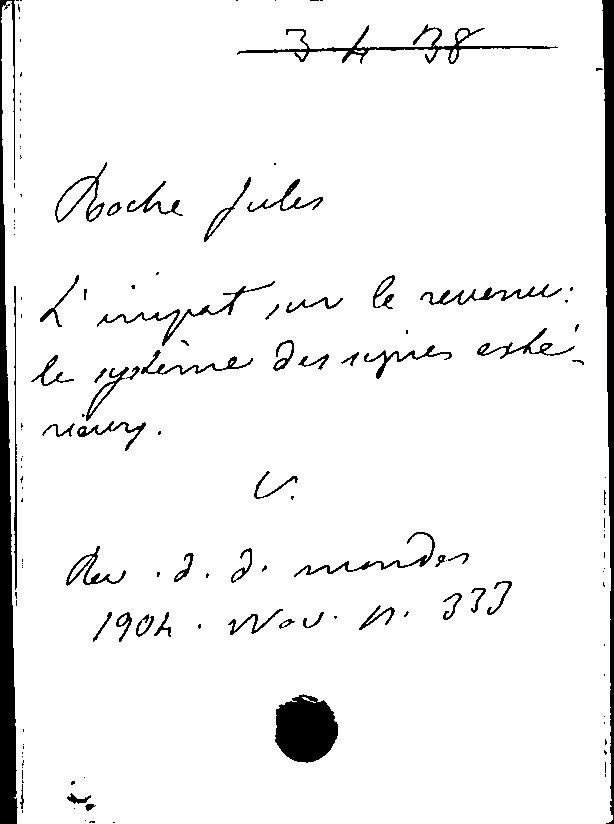 3 4 38
Roche Jules
L'impot sur le revenu:
le système des signes exté-
rieurs.
V.
Rev. d. d. mondes
1904. Nov. p. 333